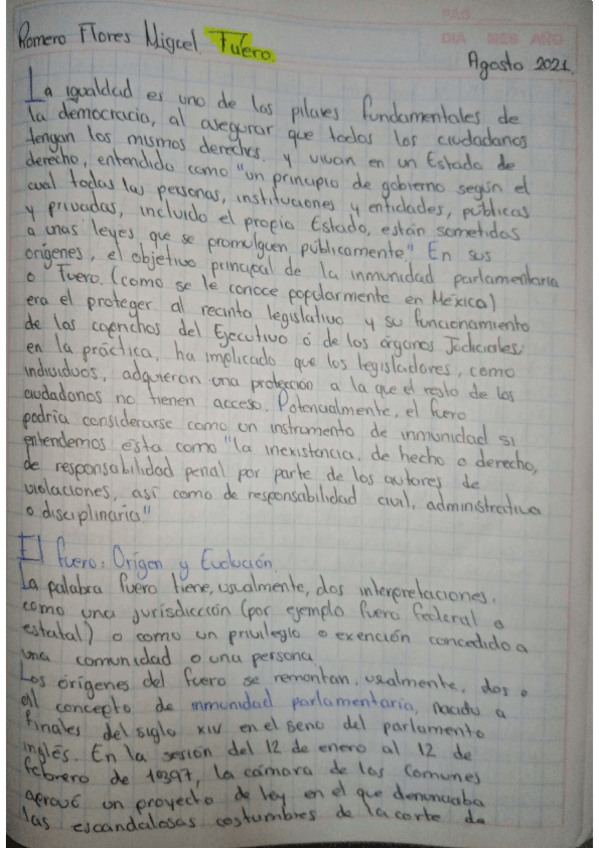 PÁG
DIA MES AÑO
Romero Flores Miguel. Fuero.
Agosto 2021.
La igualdad es uno de los pilares fundamentales de
la democracia, al asegurar que todos los ciudadanos
tengan los mismos derechos y vivan en un Estado de
derecho, entendido como "un principio de gobierno según el
cual todas las personas, instituciones y entidades, públicas
y privadas, incluido el propio Estado, están sometidas
a unas leyes que se promulguen públicamente" En sus
orígenes, el objetivo principal de la inmunidad parlamentaria
o Fuero. (como se le conoce popularmente en México)
era el proteger al recinto legislativo y su funcionamiento
de los del Ejecutivo ó de los órganos Judiciales.
en la práctica, ha implicado que los legisladores, como
individuos, adquieran una protección a la que el resto de los
ciudadanos no tienen acceso. Potencialmente, el fuero
podría considerarse como un instrumento de inmunidad si
entendemos esta como "la inexistencia, de hecho o derecho,
de responsabilidad penal por parte de los autores de
violaciones, así como de responsabilidad civil, administrativa
o disciplinaria"
El fuero: Origen y Evolución.
La palabra fuero tiene, usualmente, dos interpretaciones.
como una jurisdicción (por ejemplo fuero federal o
estatal) o como un privilegio o exención concedido a
una comunidad o una persona.
Los orígenes del fuero se remontan, usualmente, dos o
all concepto de inmunidad parlamentaria, nacido a
finales del siglo XIV en el seno del parlamento
inglés. En la sesión del 12 de enero al 12 de
febrero de 10397, la cámara de los Comunes
un proyecto de ley en el que denunciaba
las escandalosas costumbres de la corte de